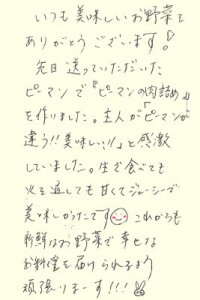 いつも美味しいお野菜を
ありがとうございます!
先日送っていただいた
ピーマンで「ピーマンの肉詰め」
を作りました。主人が「ピーマンが
違う!!美味しい!!」と感激
していました。生で食べても
火を通しても甘くてジューシーで
美味しかったです これからも
新鮮なお野菜で幸せな
お料理を届けられるよう
頑張りまーす!!!